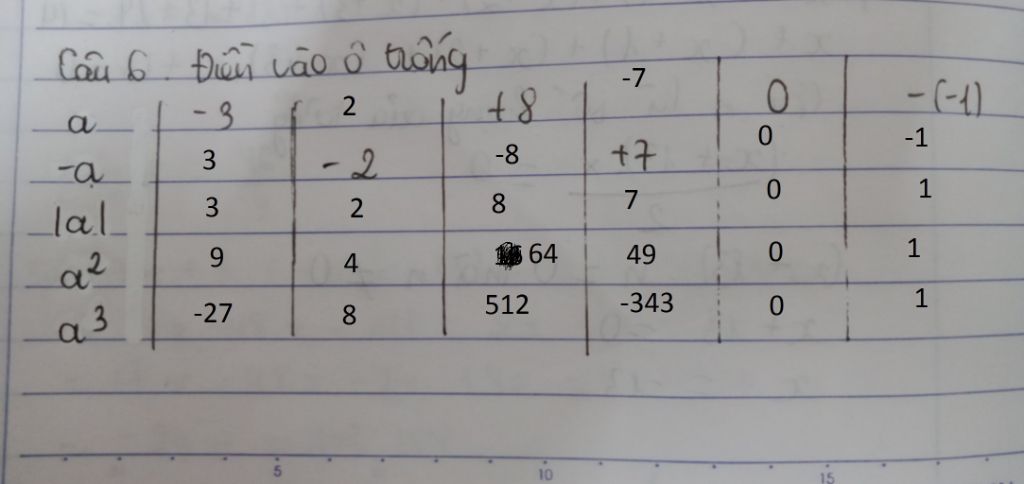 Câu 6. Điền vào ô trống
a -3 2 +8 -7 0 -(-1)
-a 3 -2 -8 +7 0 -1
|a| 3 2 8 7 0 1
a² 9 4 64 49 0 1
a³ -27 8 512 -343 0 1
5 10 15